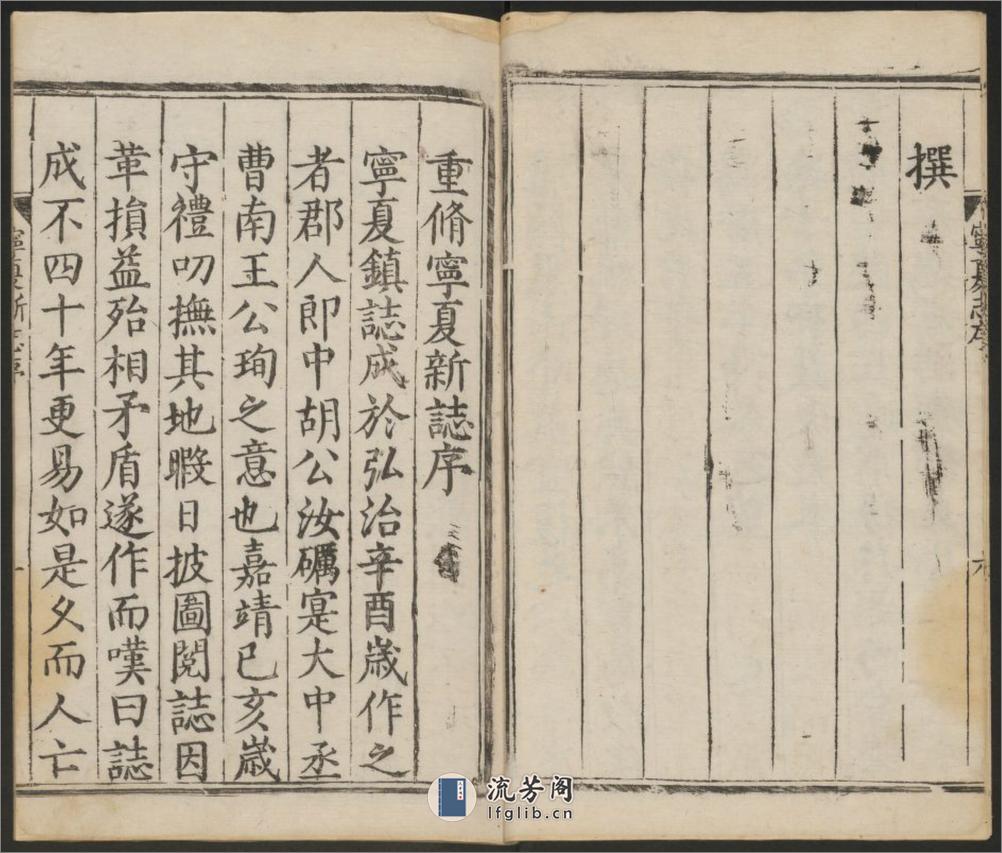 撰
寧夏新志序
重脩寧夏新誌序
寧夏鎮誌成於弘治辛酉歲作之
者郡人郎中胡公汝礪寔大中丞
曹南王公珣之意也嘉靖己亥歲
守禮叨撫其地暇日披圖閱誌因
革損益殆相矛盾遂作而嘆曰誌
成不四十年更易如是久而人亡
寧夏新志序
一
流芳阁
lfglib.cn